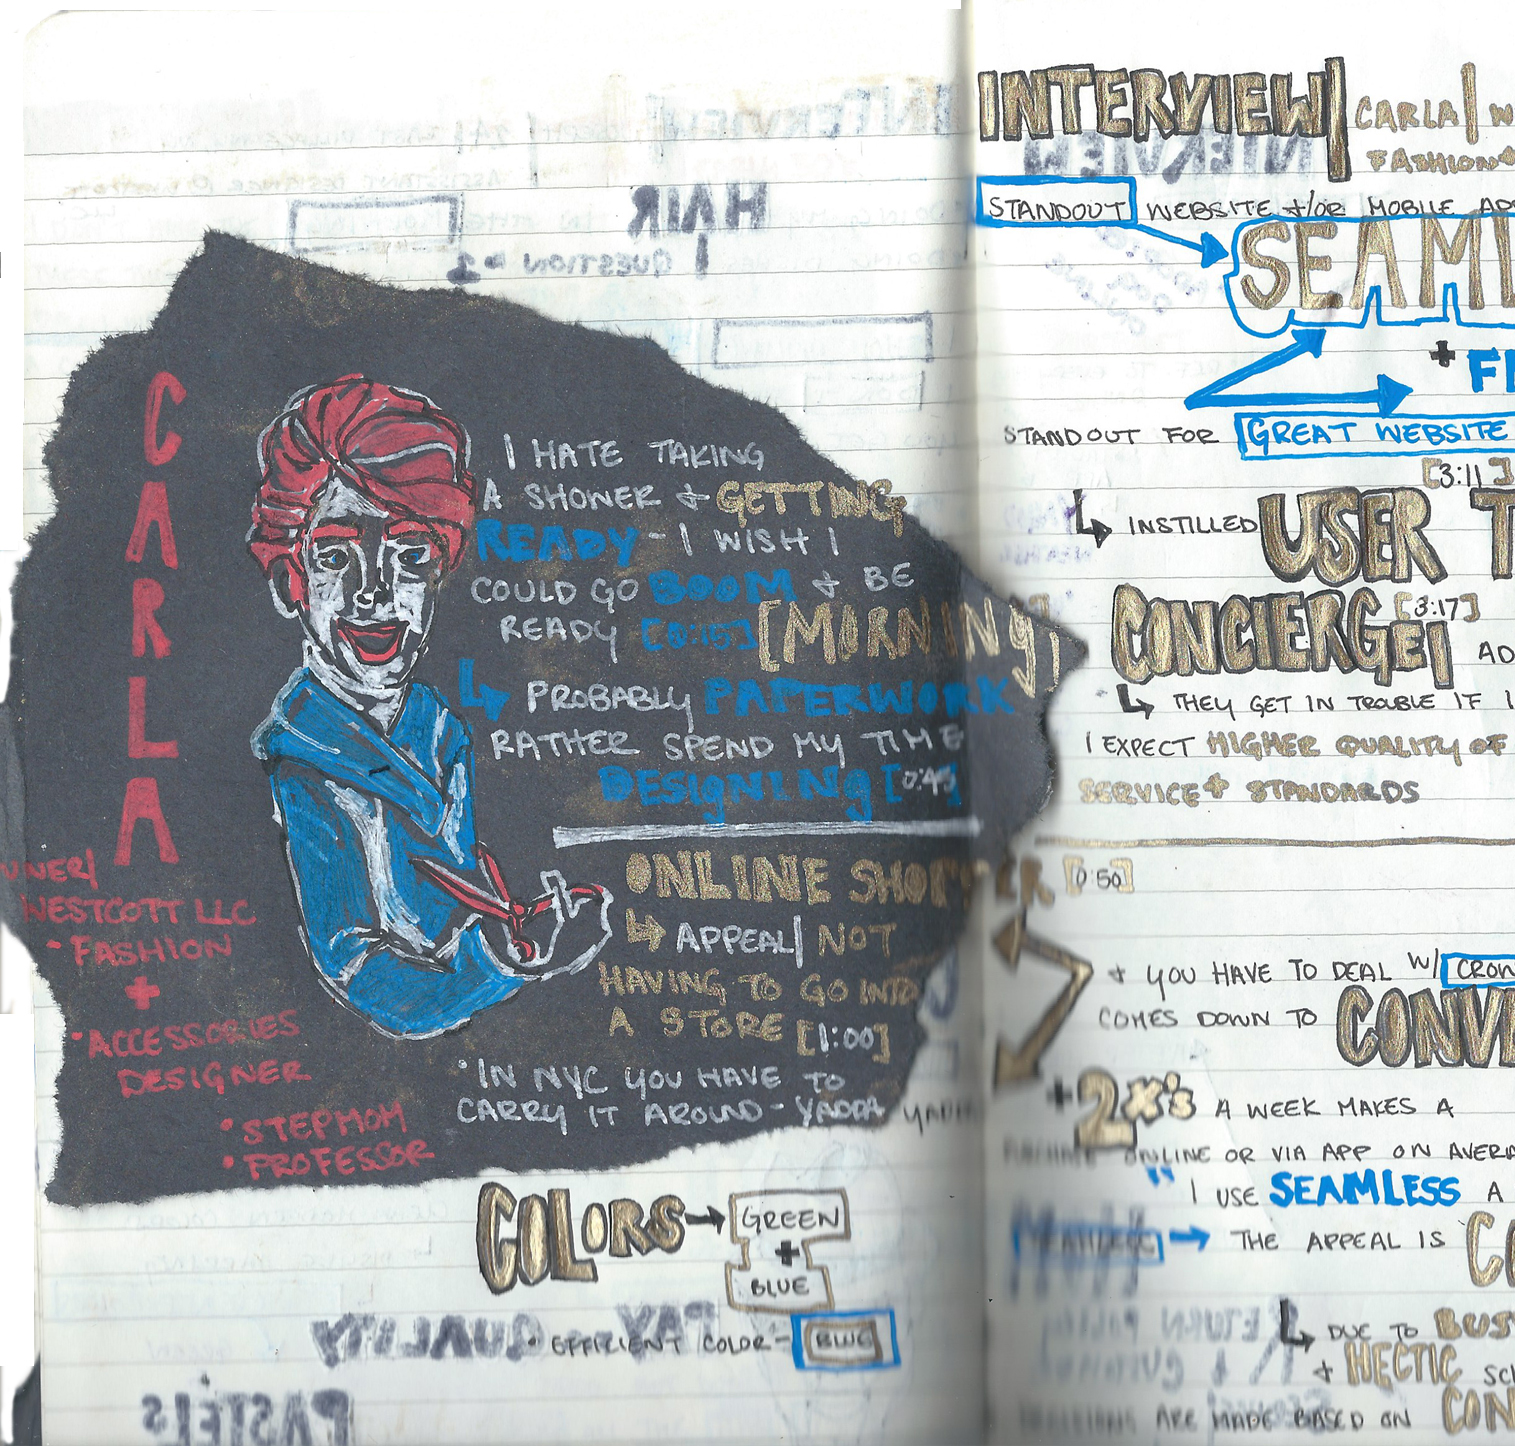 CARLA
WESTCOTT LLC
• FASHION
+
• ACCESSORIES
DESIGNER
• STEPMOM
• PROFESSOR
I HATE TAKING
A SHOWER + GETTING
READY - I WISH I
COULD GO BOOM + BE
READY [0:15] [MORNING]
PROBABLY PAPERWORK
RATHER SPEND MY TIME
DESIGNING [0:45]
ONLINE SHOPPER [0:50]
APPEAL| NOT
HAVING TO GO INTO
A STORE [1:00]
• IN NYC YOU HAVE TO
CARRY IT AROUND - YADDA YADDA
COLORS → GREEN
+
BLUE
• EFFICIENT COLOR - BLUE
HAIR
QUESTION #1
QUALITY
PASTELS
INTERVIEW| CARLA|
FASHION+
STANDOUT WEBSITE +/OR MOBILE
SEAML
+
STANDOUT FOR GREAT WEBSITE
[3:11]
INSTILLED USER
CONCIERGE| [3:17]
THEY GET IN TROUBLE IF I
I EXPECT HIGHER QUALITY OF
SERVICE + STANDARDS
+ YOU HAVE TO DEAL W/
COMES DOWN TO
+ 2x's A WEEK MAKES A
PURCHASE ONLINE OR VIA APP ON
" I USE SEAMLESS A
SEAMLESS → THE APPEAL IS
DUE TO
+ HECTIC
DECISIONS ARE MADE BASED ON